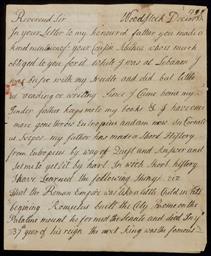 Reverend Sir Woodstock Decemr
In your letter to my honoured father you made a
kind mention of your Cousin which was much
obliged to you for it which I was at Lebanon I
was busie with my Trade and did but little
at reading or writing Since I Came home my
Tender father keeps me to my book & I have once
more gone throro Eutropius and am now in Corneli
us Nepos my father has made a Short History
from Eutropius by way of Quest and Answer and
Set me to get it by hart In wich Short history
I have Learned the following things viz
that the Roman Empire was like a little Child in its
begining Romulus built the City Rome on the
Palatine mount he formed the Senate and died In ye
37th year of his reign the next King was the famous